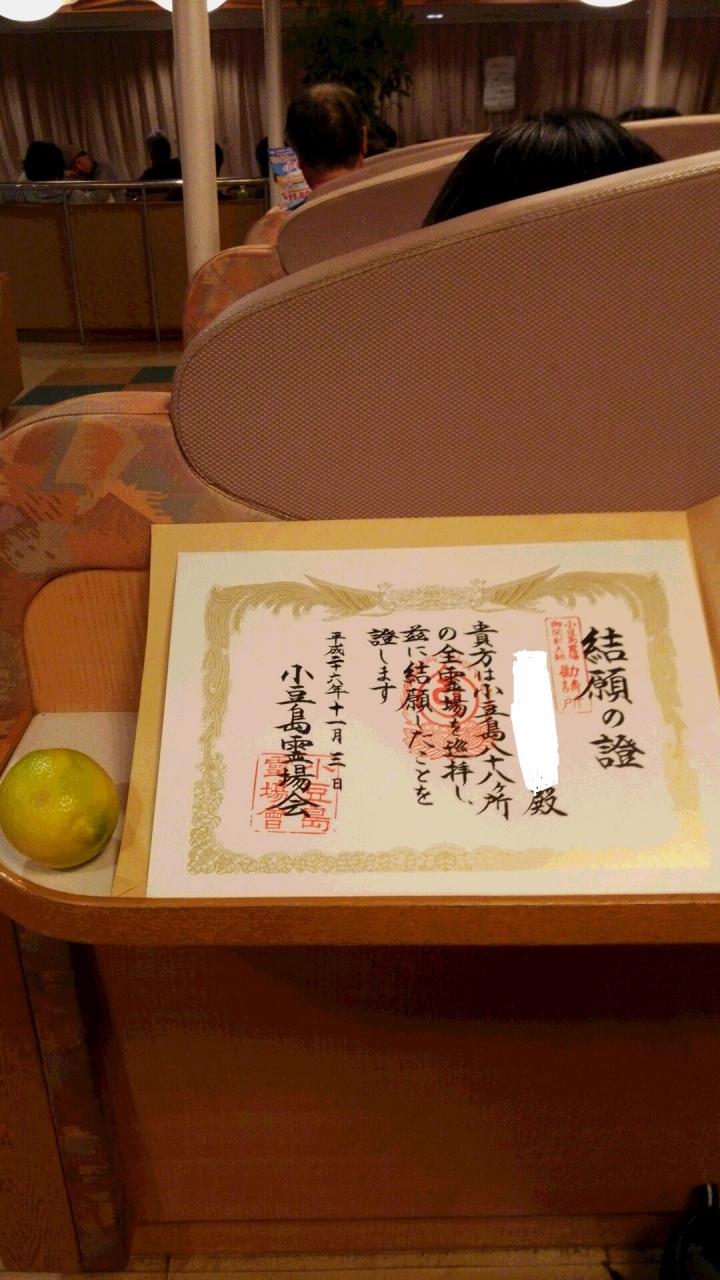 結願の證
小豆島霊場
勧請所
殿
貴方は小豆島八十八ヶ所
の全霊場を巡拝し、
茲に結願したことを
證します
平成二十六年十一月三日
小豆島霊場会
小豆島
霊場會